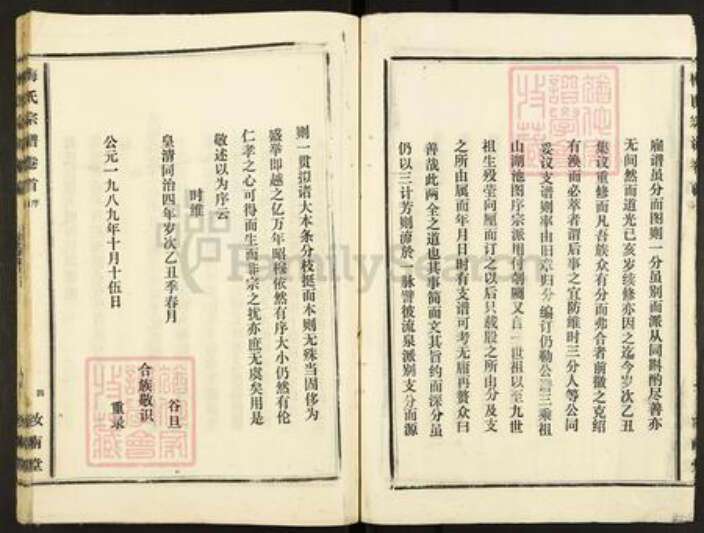 庙谱虽分而图则一分虽别而派从同斟酌尽善亦
无间然而道光己亥岁续修亦因之迄今岁次乙丑
集议重修而凡吾族众有分而弗合者前徽之克绍
有涣而必萃者谓后事之宜防维时三分人等公同
妥议支谱则率由旧章归分编订仍勒公谱三乘祖
山湖池图序宗派用付剞劂又自一世祖以至九世
祖生殁茔向厘而订之以后只载股之所由分及支
之所由属而年月日时有支谱可考无庸再赘众曰
善哉此两全之道也其事简而文其旨约而深分虽
仍以三计芳则流於一脉譬彼流泉派别支分而源
则一贯拟诸大木条分枝挺而本则无殊当因侈为
盛举即越之亿万年昭穆依然有序大小仍然有伦
仁孝之心可得而生而非宗之扰亦庶无虞矣用是
敬述以为序云
时维
皇清同治四年岁次乙丑季春月
谷旦
合族敬识
公元一九八九年十月十五日
重录
梅氏宗谱卷首
序
四
汝南堂
FamilySearch